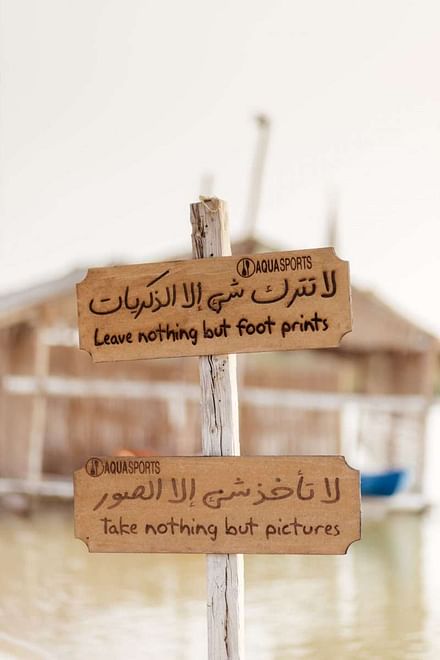 AQUASPORTS
لا تترك شي إلا الذكريات
Leave nothing but foot prints
AQUASPORTS
لا تأخذ شي إلا الصور
Take nothing but pictures